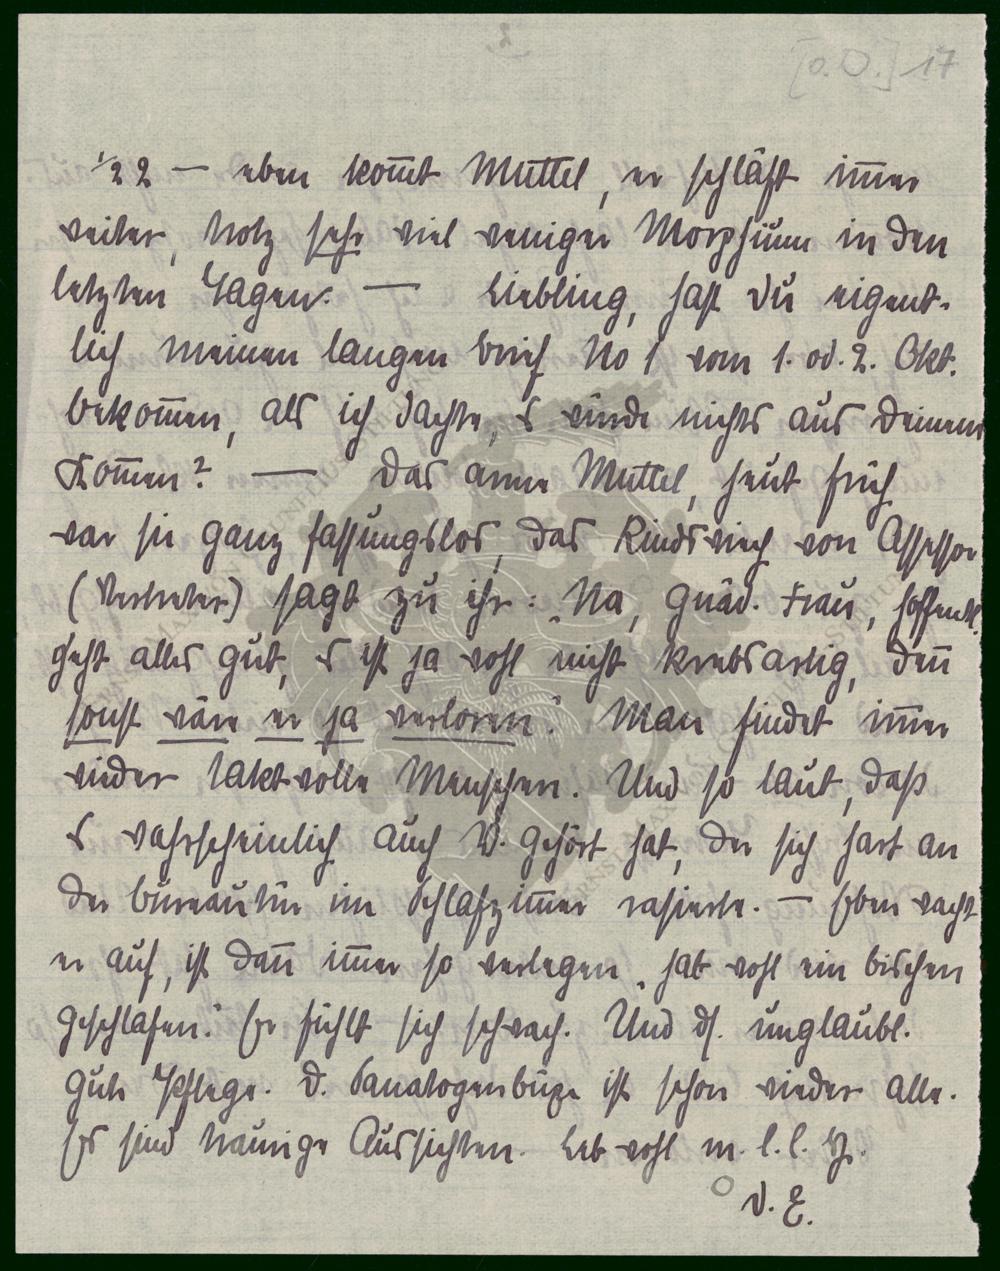 2
[o. D.] 17
1/2 2 — eben kom̅t Muttel, er schläft im̅er
weiter, trotz sehr viel weniger Morphium in den
letzten Tagen. — Liebling, hast Du eigent-
lich meinen langen Brief No 1 vom 1. od. 2. Okt.
bekom̅en, als ich dachte, es würde nichts aus Deinem
Kom̅en? — Das arme Muttel, heut früh
war sie ganz fassungslos, das Rindsviech von Assessor
(Vertreter) sagt zu ihr: „Na, gnäd. Frau, hoffentl.
geht alles gut, es ist ja wohl nicht krebsartig, den̅
sonst wäre er ja verloren." Man findet im̅er
wieder taktvolle Menschen. Und so laut, daß
es wahrscheinlich auch V. gehört hat, der sich hart an
der Bureautür im Schlafzim̅er rasierte. — Eben wacht
er auf, ist dan̅ im̅er so verlegen „hab wohl ein bischen
geschlafen." Er fühlt sich schwach. Und ds. unglaubl.
gute Pflege. D. Sanatogenbüxe ist schon wieder alle.
Es sind traurige Aussichten. Leb wohl m. l. l. H.
D. E.